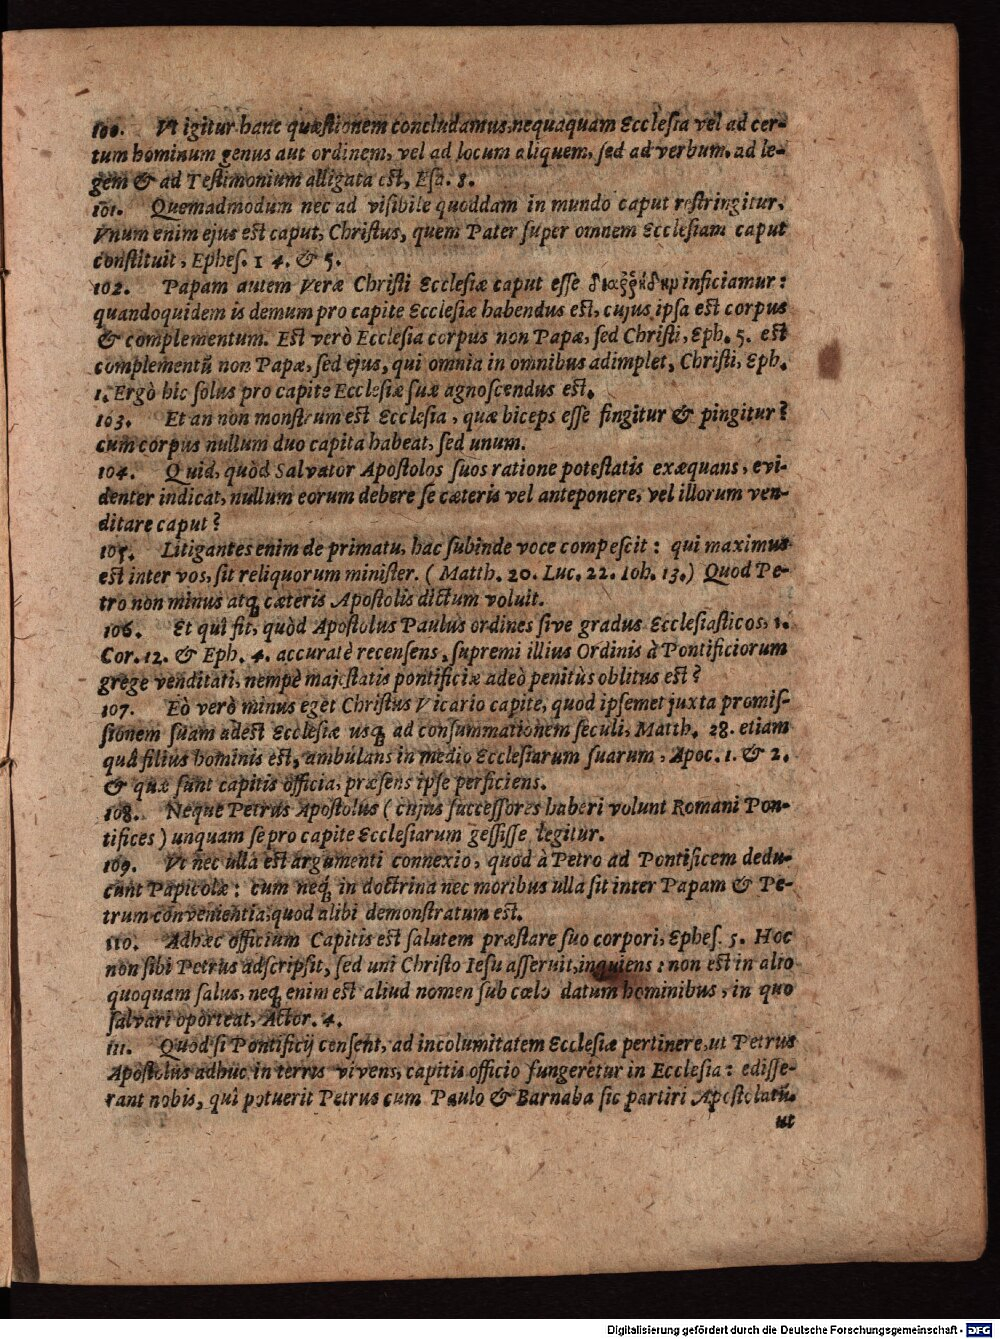 100. Vt igitur hanc quæstionem concludamus, nequaquam Ecclesia vel ad cer-
tum hominum genus aut ordinem, vel ad locum aliquem, sed ad verbum, ad le-
gem & ad Testimonium alligata est, Esa. 8.
101. Quemadmodum nec ad visibile quoddam in mundo caput restringitur,
Vnum enim ejus est caput, Christus, quem Pater super omnem Ecclesiam caput
constituit, Ephes. 1 4. & 5.
102. Papam autem Veræ Christi Ecclesiæ caput esse inficiamur:
quandoquidem is demum pro capite Ecclesiæ habendus est, cujus ipsa est corpus
& complementum. Est verò Ecclesia corpus non Papæ, sed Christi, Eph. 5. est
complementū non Papæ, sed ejus, qui omnia in omnibus adimplet, Christi, Eph.
1. Ergò hic solus pro capite Ecclesiæ suæ agnoscendus est.
103. Et an non monstrum est Ecclesia, quæ biceps esse fingitur & pingitur?
cum corpus nullum duo capita habeat, sed unum.
104. Quid, quòd Salvator Apostolos suos ratione potestatis exæquans, evi-
denter indicat, nullum eorum debere se cæteris vel anteponere, vel illorum ven-
ditare caput?
105. Litigantes enim de primatu, hac subinde voce compescit: qui maximus
est inter vos, sit reliquorum minister. (Matth. 20. Luc. 22. Ioh. 13.) Quod Pe-
tro non minus atq; cæteris Apostolis dictum voluit.
106. Et quî fit, quòd Apostolus Paulus ordines sive gradus Ecclesiasticos, 1.
Cor. 12. & Eph. 4. accuratè recensens, supremi illius Ordinis à Pontificiorum
grege venditati, nempè majestatis pontificiæ adeò penitùs oblitus est?
107. Eò verò minus eget Christus Vicario capite, quod ipsemet juxta promis-
sionem suam adest Ecclesiæ usq; ad consummationem seculi, Matth. 28. etiam
quâ filius hominis est, ambulans in medio Ecclesiarum suarum, Apoc. 1. & 2.
& quæ sunt capitis officia, præsens ipse perficiens.
108. Neque Petrus Apostolus (cujus successores haberi volunt Romani Pon-
tifices) unquam se pro capite Ecclesiarum gessisse legitur.
109. Vt nec ulla est argumenti connexio, quod à Petro ad Pontificem dedu-
cunt Papicolæ: cum neq; in doctrina nec moribus ulla sit inter Papam & Pe-
trum convenientia, quod alibi demonstratum est.
110. Adhæc officium Capitis est salutem præstare suo corpori, Ephes. 5. Hoc
non sibi Petrus adscripsit, sed uni Christo Iesu asseruit, inquiens: non est in alio
quoquam salus, neq; enim est aliud nomen sub cœlo datum hominibus, in quo
salvari oporteat, Actor. 4.
111. Quod si Pontificij censent, ad incolumitatem Ecclesiæ pertinere, ut Petrus
Apostolus adhuc in terris vivens, capitis officio fungeretur in Ecclesia: edisse-
rant nobis, quî potuerit Petrus cum Paulo & Barnaba sic partiri Apostolatū.
ut
Digitalisierung gefördert durch die Deutsche Forschungsgemeinschaft - DFG